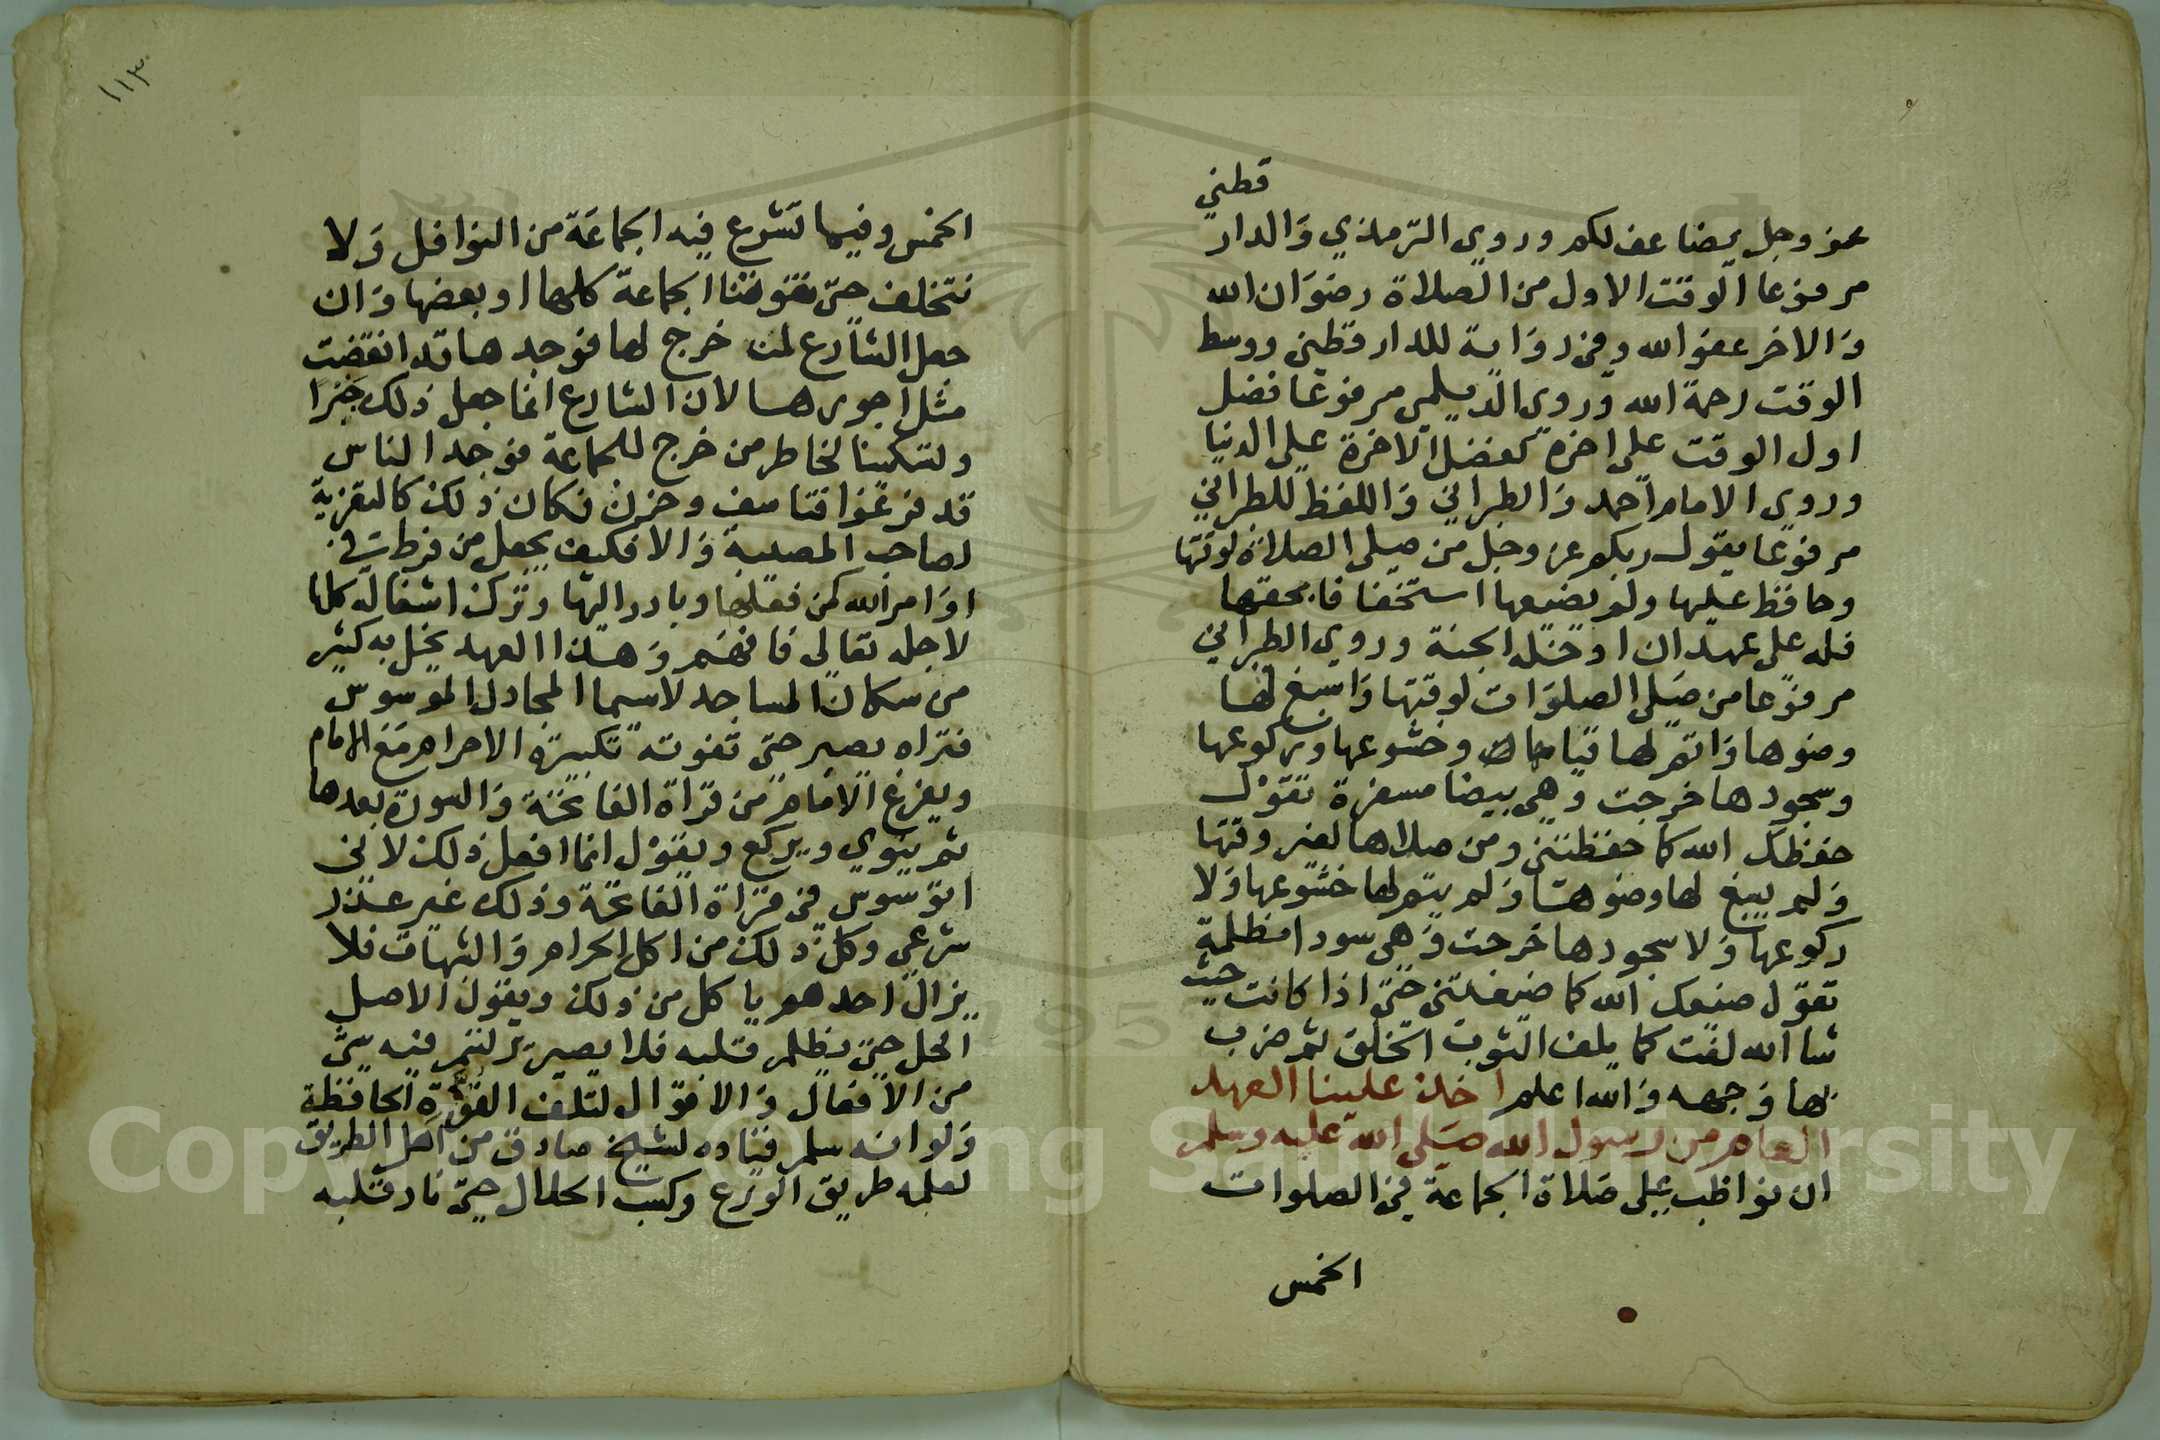 قطني
عز وجل يضاعف لكم وروى الترمذي والدار
مرفوعا الوقت الاول من الصلاة رضوان الله
والاخر عفو الله وفي رواية للدار قطني ووسط
الوقت رحمة الله وروى الديلمي مرفوعا فضل
اول الوقت على اخره كفضل الاخرة على الدنيا
وروى الامام احمد والطبراني واللفظ للطبراني
مرفوعا يقول ربكم عز وجل من صلى الصلاة لوقتها
وحافظ عليها ولم يضيعها استخفافا بحقها
فله على عهد ان ادخله الجنة وروى الطبراني
مرفوعا من صلى الصلوات لوقتها واسبغ لها
وضوها واتم لها قيامها وخشوعها وركوعها
وسجودها خرجت وهي بيضا مسفرة تقول
حفظك الله كما حفظتني ومن صلاها لغير وقتها
ولم يسبغ لها وضوها ولم يتم لها خشوعها ولا
ركوعها ولا سجودها خرجت وهي سودا مظلمة
تقول ضيعك الله كما ضيعتني حتى اذا كانت حيث
شا الله لفت كما يلف الثوب الخلق ثم ضرب
بها وجهه والله اعلم اخذ علينا العهد
العام من رسول الله صلى الله عليه وسلم
ان نواظب على صلاة الجماعة في الصلوات
الخمس
١١٣
الخمس وفيما تشرع فيه الجماعة من النوافل ولا
نتخلف حتى تفوتنا الجماعة كلها او بعضها وان
جعل الشارع لمن خرج لها فوجدها قد انقضت
مثل اجورها لان الشارع انما جعل ذلك جبرا
وتسكينا لخاطر من خرج للجماعة فوجد الناس
قد فرغوا فتاسف وحزن فكان ذلك كالتعزية
لصاحب المصيبة والا فكيف يجعل من فرط في
اوامر الله كمن فعلها وبادر اليها وترك اشغاله كلها
لاجله تعالى فافهم وهذا العهد يخل به كثير
من سكان المساجد لاسيما المجادل الموسوس
فتراه يصبر حتى تفوته تكبيرة الاحرام مع الامام
ويفرغ الامام من قراة الفاتحة والسورة بعدها
ثم ينوي ويركع ويقول انما افعل ذلك لاني
اتوسوس في قراة الفاتحة وذلك غير عذر
شرعي وكل ذلك من اكل الحرام والشبهات فلا
يزال احدهم ياكل من ذلك ويقول الاصل
الحل حتى يظلم قلبه فلا يصير يرتسم فيه شي
من الافعال والاقوال لتلف القوة الحافظة
ولو انه سلم قياده لشيخ صادق من اهل الطريق
لعلمه طريق الورع وكسب الحلال حتى نار قلبه
Copyright © King Saud University